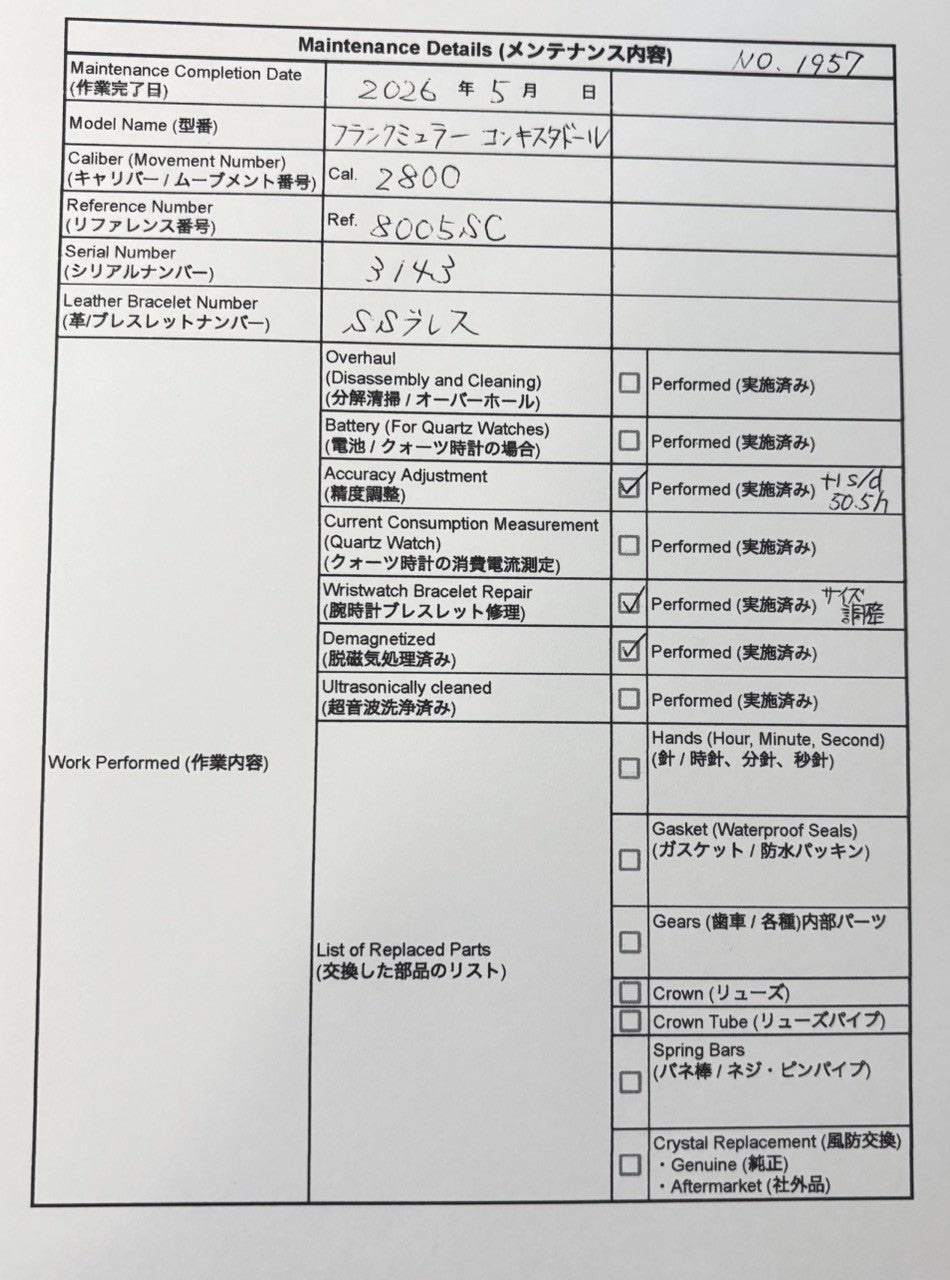 Maintenance Details (メンテナンス内容) NO. 1957
Maintenance Completion Date
(作業完了日)
2026 年 5 月 日
Model Name (型番)
フランクミュラー コンキスタドール
Caliber (Movement Number)
(キャリバー / ムーブメント番号)
Cal. 2800
Reference Number
(リファレンス番号)
Ref. 8005SC
Serial Number
(シリアルナンバー)
3143
Leather Bracelet Number
(革/ブレスレットナンバー)
SSブレス
Work Performed (作業内容)
Overhaul
(Disassembly and Cleaning)
(分解清掃 / オーバーホール)
Performed (実施済み)
Battery (For Quartz Watches)
(電池 / クォーツ時計の場合)
Performed (実施済み)
Accuracy Adjustment
(精度調整)
Performed (実施済み) +1 s/d
50.5h
Current Consumption Measurement
(Quartz Watch)
(クォーツ時計の消費電流測定)
Performed (実施済み)
Wristwatch Bracelet Repair
(腕時計ブレスレット修理)
Performed (実施済み) サイズ
調整
Demagnetized
(脱磁気処理済み)
Performed (実施済み)
Ultrasonically cleaned
(超音波洗浄済み)
Performed (実施済み)
List of Replaced Parts
(交換した部品のリスト)
Hands (Hour, Minute, Second)
(針 / 時針、分針、秒針)
Gasket (Waterproof Seals)
(ガスケット / 防水パッキン)
Gears (歯車 / 各種)内部パーツ
Crown (リューズ)
Crown Tube (リューズパイプ)
Spring Bars
(バネ棒 / ネジ・ピンパイプ)
Crystal Replacement (風防交換)
・Genuine (純正)
・Aftermarket (社外品)